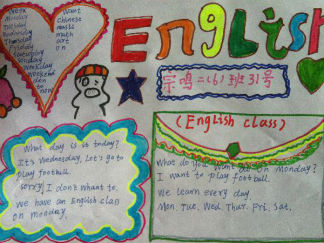 English
Week
Monday
Tuesday
Wednesday
Thursday
Friday
Saturday
Sunday
weekend
Want
chinese
music
math
art
on
二(6)班31号
(English class)
What day is it today?
It's wednesday, Let's go to
play football.
sorry, I don't whant to.
we have an English class
on monday.
What do you do on monday?
I want to play football.
we learn every day.
Mon. Tue. Wed. Thur. Fri. Sat.